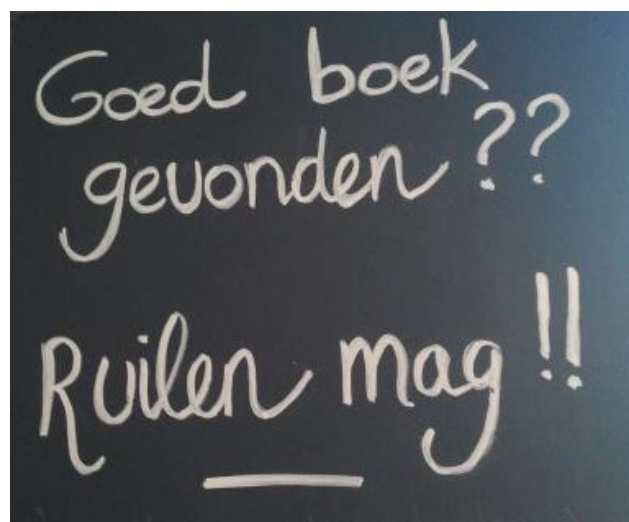 Goed boek
gevonden??
Ruilen mag!!